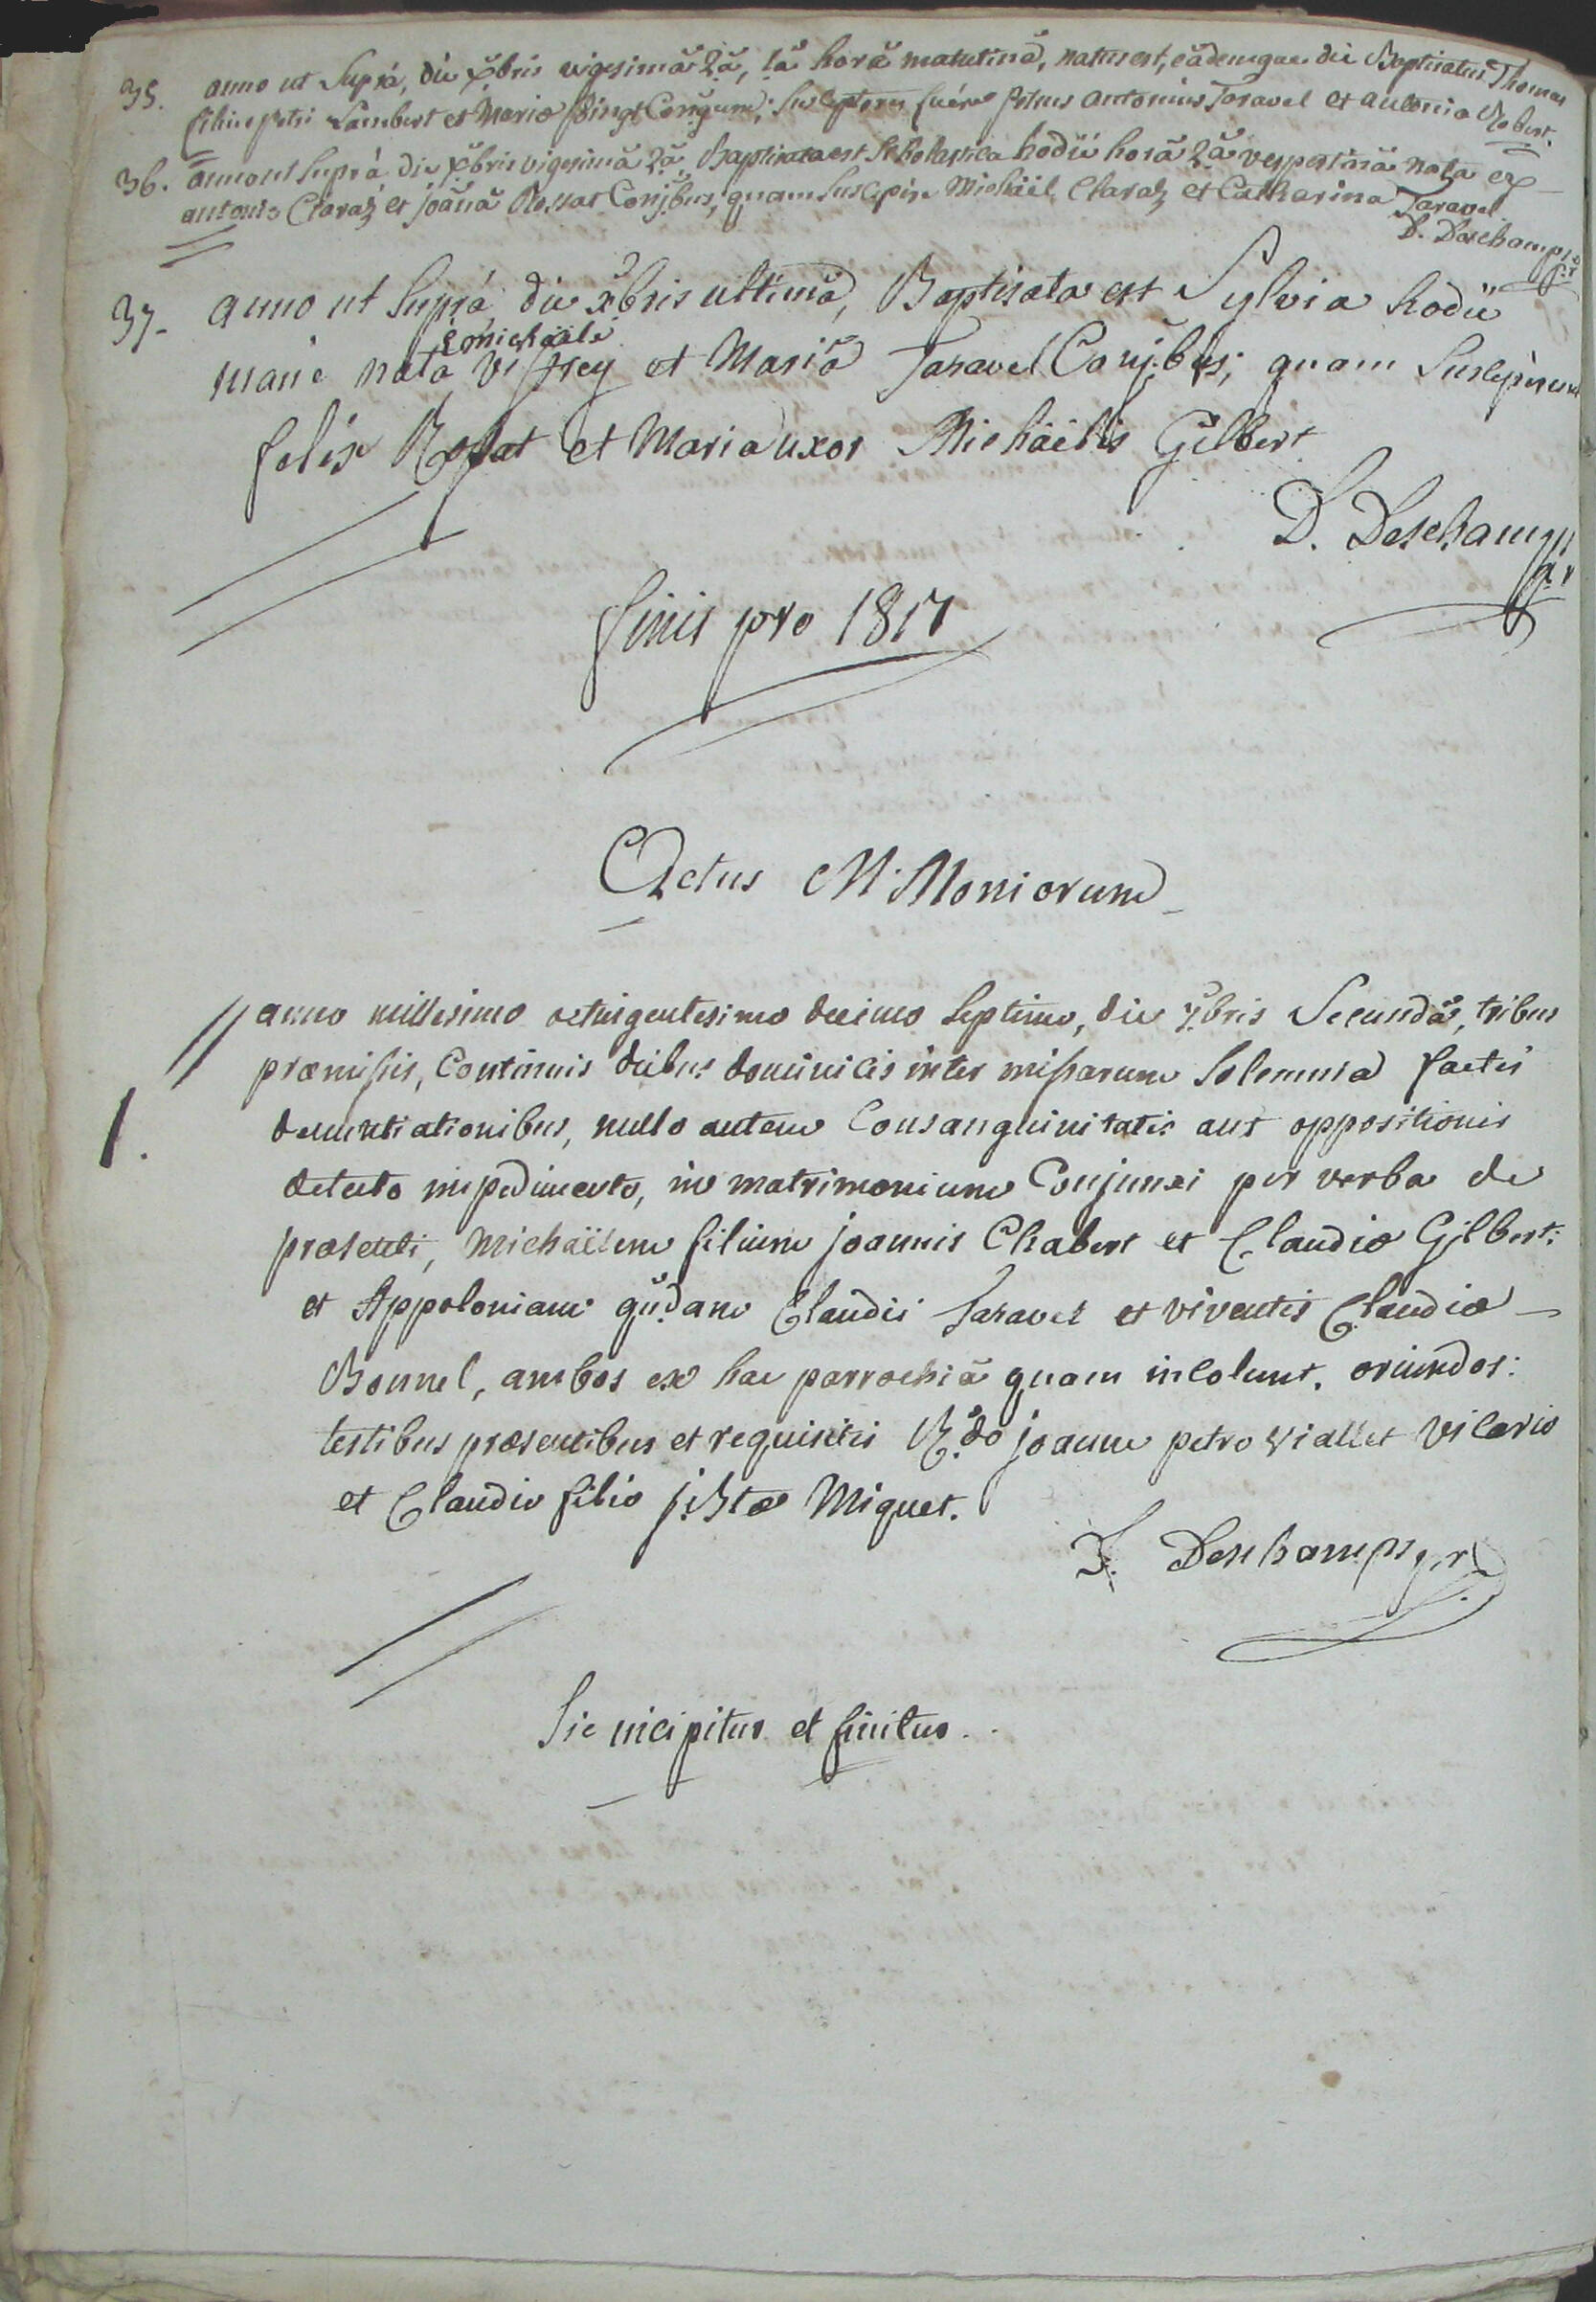 35. anno ut Suprà, die xbris vigesimâ 2â, 1â horâ matutinâ, natus est, eâdemque die Baptisatus Thomas
filius petri Lambert et Mariæ Conjgum; Susceptores fuére petrus antonius Taravel et antonia Robert.
36. anno ut Suprà die xbris vigesimâ 2â, Baptisata est Scholastica hodiè horâ 2â vespertinâ nata ex
antonio Claraz et joânâ Rossat Conjbus; quam Suscepére Michäel Claraz et Catharina Taravel
D. Deschamps r.
37. anno ut Suprà, die xbris ultimâ, Baptisata est Sylvia hodiè
è michäele
manè nata Viffrey et Mariâ Taravel Conjbus; quam Suscepérunt
felix Rossat et Maria uxor Michäelis Gilbert
D. Deschamps
r
finis pro 1817
Actus M.Moniorum
// anno millesimo octingentesimo decimo Septimo, die 7bris Secundâ, tribus
1. præmissis, Continuis diebus dominicis inter missarum Solemnia factis
denuntiationibus, nullo autem Consanguinitatis aut oppositionis
detecto impedimento, in matrimonium Conjunxi per verba de
præsenti, Michäelem filium joannis Chabert et Claudiæ Gilbert:
et Appoloniam qudam Claudii Taravel et viventis Claudiæ
Bonnel, ambos ex hac parrochiâ quam incolunt, oriundos:
testibus præsentibus et requisitis R.do joanne petro Viallet vicario
et Claudio filio j.Btæ Miquet.
D. Deschamps r
Sic incipitur et finitur..